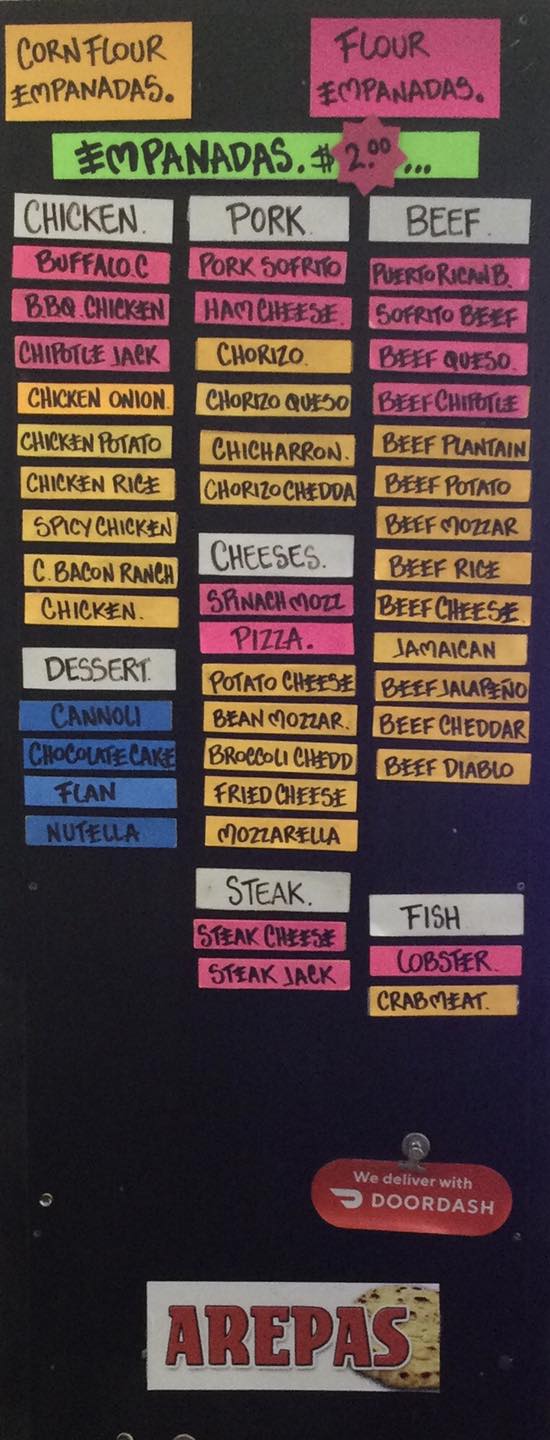 CORN FLOUR
EMPANADAS.
FLOUR
EMPANADAS.
EMPANADAS. $2.00...
CHICKEN.
BUFFALO.C
B.B.Q. CHICKEN
CHIPOTLE JACK
CHICKEN ONION.
CHICKEN POTATO
CHICKEN RICE
SPICY CHICKEN
C. BACON RANCH
CHICKEN.
DESSERT.
CANNOLI
CHOCOLATE CAKE
FLAN
NUTELLA
PORK.
PORK SOFRITO
HAM CHEESE.
CHORIZO.
CHORIZO QUESO
CHICHARRON.
CHORIZO CHEDDA
CHEESES.
SPINACH MOZZ
PIZZA.
POTATO CHEESE
BEAN MOZZAR.
BROCCOLI CHEDD
FRIED CHEESE
MOZZARELLA
STEAK.
STEAK CHEESE
STEAK JACK
BEEF.
PUERTO RICAN B.
SOFRITO BEEF
BEEF QUESO.
BEEF CHIPOTLE
BEEF PLANTAIN
BEEF POTATO
BEEF MOZZAR
BEEF RICE
BEEF CHEESE.
JAMAICAN
BEEF JALAPEÑO
BEEF CHEDDAR
BEEF DIABLO
FISH
LOBSTER.
CRABMEAT.
We deliver with
DOORDASH
AREPAS